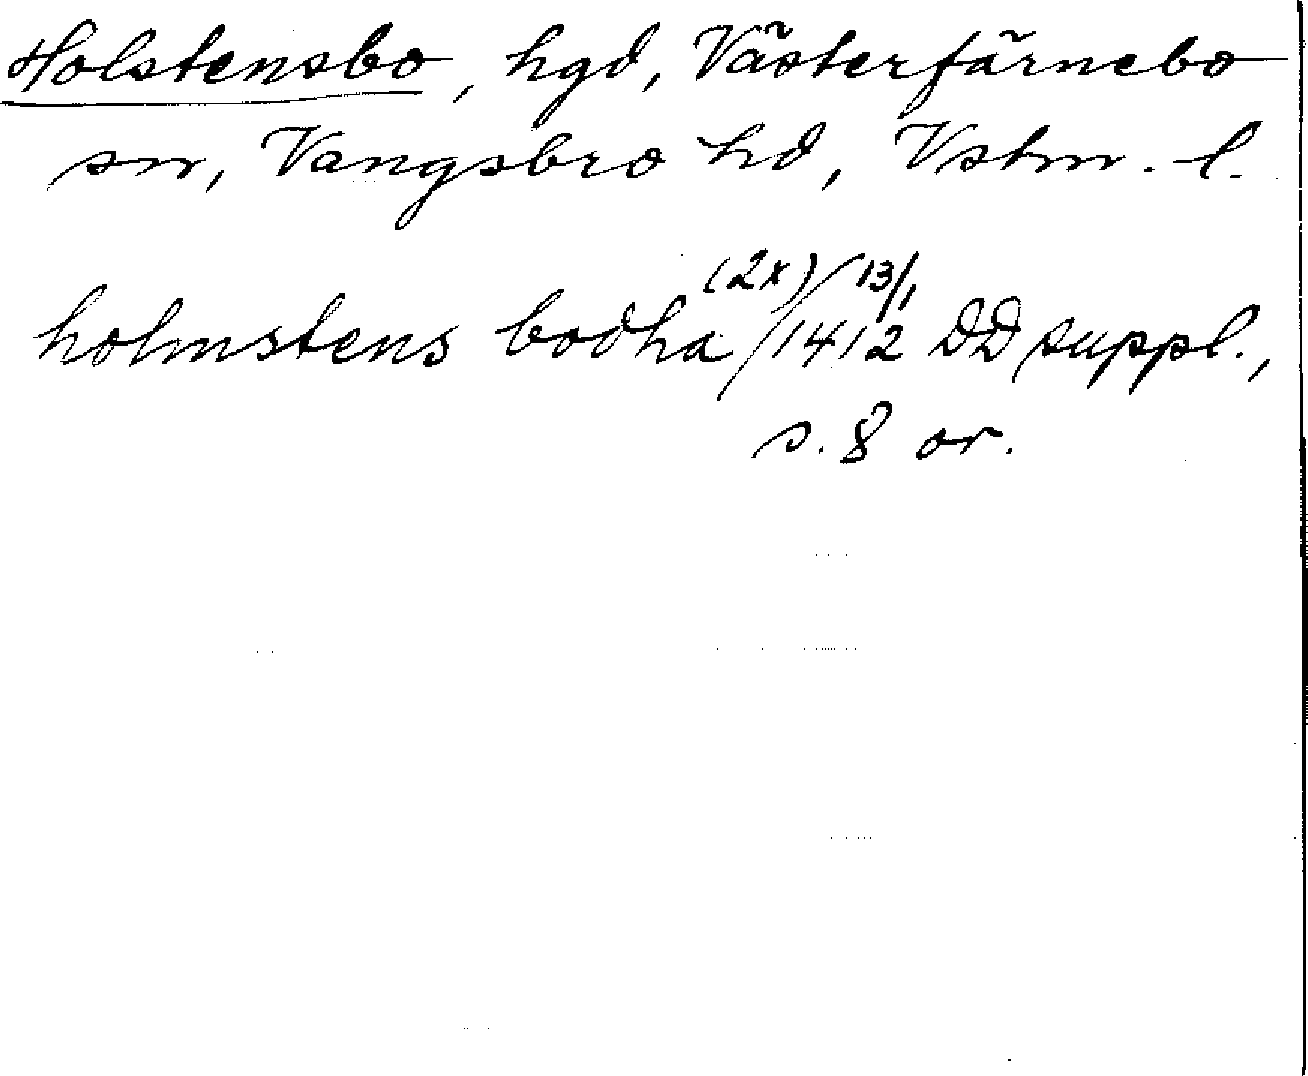 Holstensbo, hgd, Västerfärnebo
sn, Vangsbro hd, Vstm. l.
holmstens bodha (2x) 13/1 1412 DD suppl.,
s. 8 or.